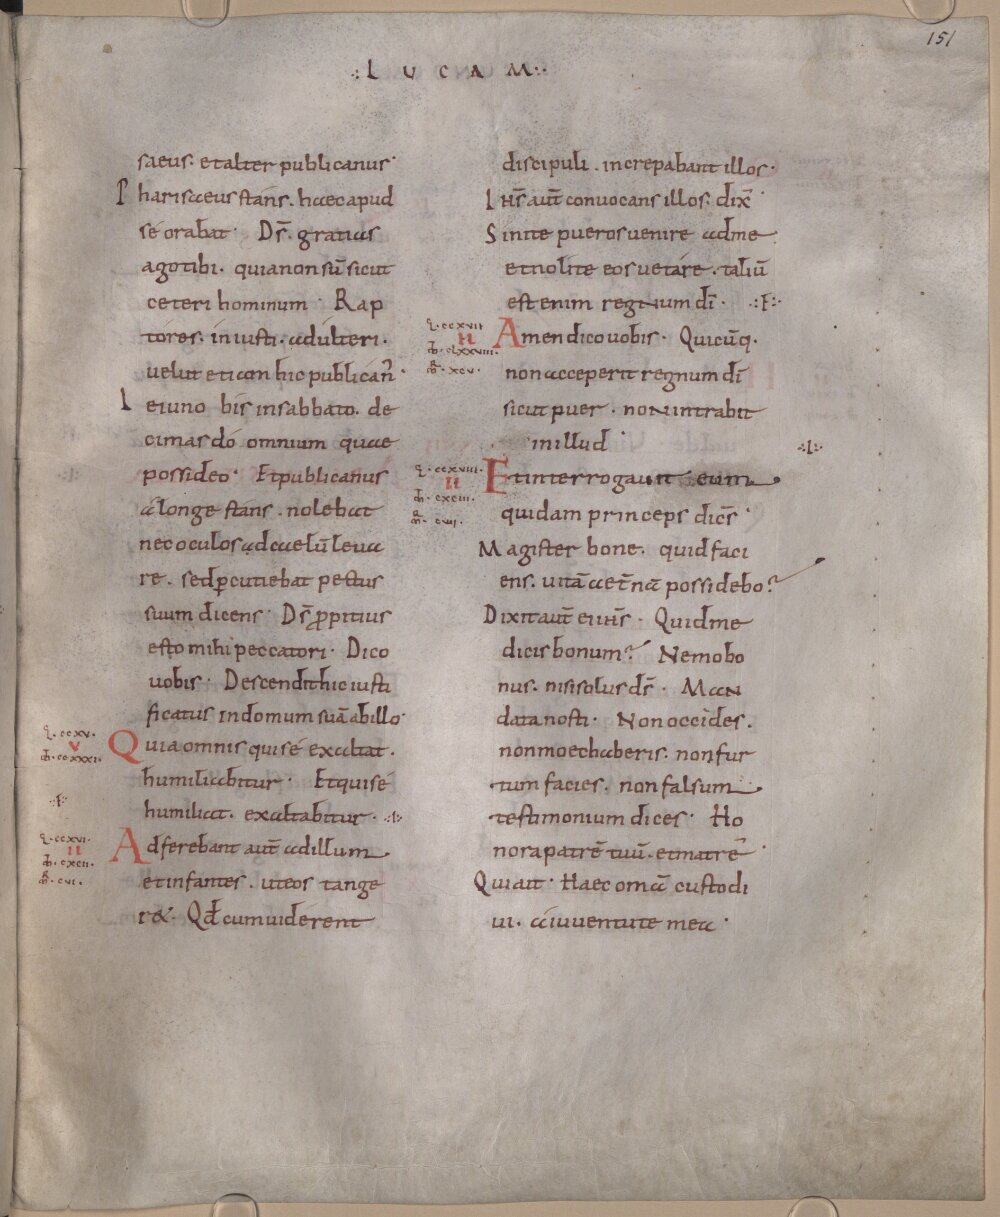 151
L U C A M
saeus. et alter publicanus.
Pharisaeus stans. haec apud
sé orabat. D̄s. gratias
ago tibi. quia non sū sicut
ceteri hominum. Rap
tores. iniusti. adulteri.
velut etiam hic publican̄.
Ieiuno bis in sabbato. de
cimas do omnium quae
possideo. Et publicanus
a longe stans. nolebat
nec oculos ad caelū leva
re. sed ꝑcutiebat pectus
suum dicens. D̄s ꝓpitius
esto mihi peccatori. Dico
vobis. Descendit hic iusti
ficatus in domum suā ab illo.
l. ccxv.
v
m̄. ccxxxi.
Quia omnis qui sé exaltat.
humiliabitur. Et qui sé
humiliat. exaltabitur.
l. ccxvi.
II
m̄. cxcii.
m̄r. cvi.
Adferebant aut̄ ad illum
et infantes. ut eos tange
re&. Qd̄ cum viderent
discipuli. increpabant illos.
Ih̄s aut̄ convocans illos. dix̄.
Sinite pueros venire ad me
et nolite eos vetare. taliū
est enim regnum dī.
l. ccxvii
II
m̄. clxxviii.
m̄r. xcv.
Amen dico vobis. Quicūq.
non acceperit regnum dī
sicut puer. non intrabit
in illud.
l. ccxviii.
II
m̄. cxciii.
m̄r. cvii.
Et interrogavit eum
quidam princeps dicēs.
Magister bone. quid faci
ens. vitā aet̄nā possidebo?
Dixit aut̄ ei ih̄s. Quid me
dicis bonum? Nemo bo
nus. nisi solus d̄s. Man
data nosti. Non occides.
non moechaberis. non fur
tum facies. non falsum
testimonium dices. Ho
nora patrē tuū. et matrē.
Qui ait. Haec om̄a custodi
vi. a iuventute mea.